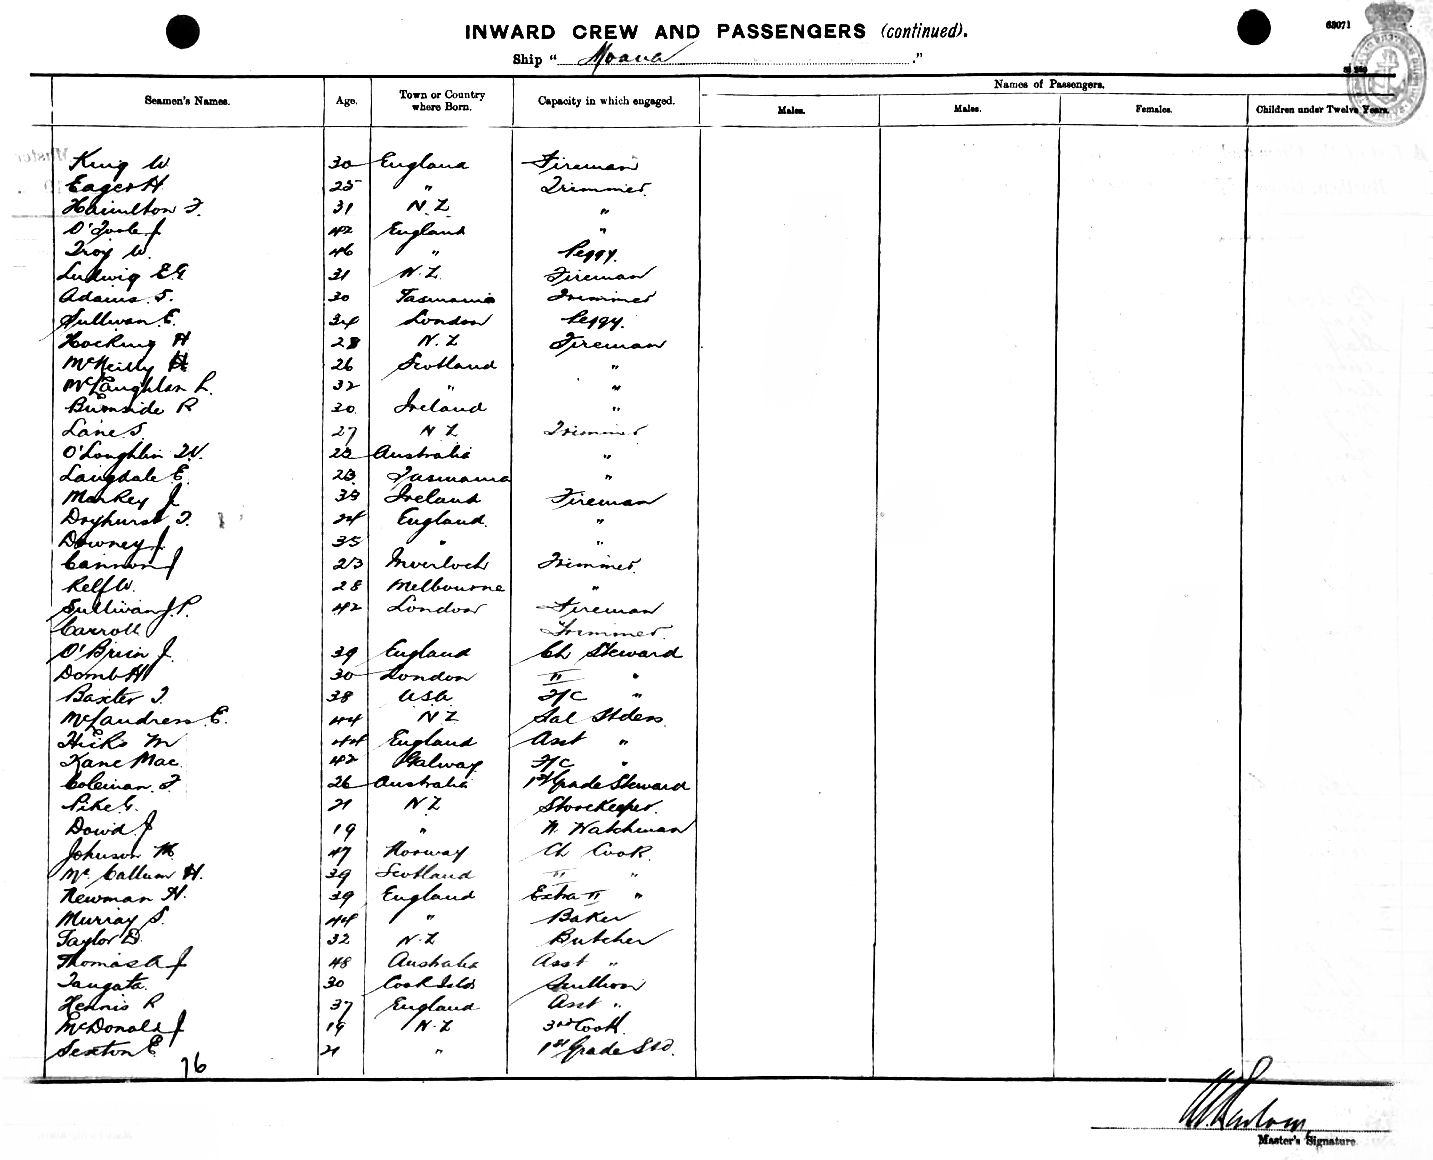 INWARD CREW AND PASSENGERS (continued).
63071
Ship " Moana ."
Seamen's Names. Age. Town or Country where Born. Capacity in which engaged. Names of Passengers.
Males. Males. Females. Children under Twelve Years.
King W 30 England Fireman
Eager H 25 " Trimmer
Hamilton F. 31 N.Z "
O'Toole J 42 England "
Troy W. 46 " Peggy.
Ludwig E G 31 N.Z. Fireman
Adams S. 30 Tasmania Trimmer
Sullivan E. 34 London Peggy.
Hocking H 28 N.Z Fireman
McNeilly H 26 Scotland "
McLaughlan L. 32 " "
Burnside R 30 Ireland "
Lane S. 27 N Z Trimmer
O'Loughlin W. Australia "
Langdale E. 23 Tasmania "
Markey J Ireland Fireman
Dryhurst T. 24 England. "
Downey J. 35 " "
Cannon J 23 Trimmer
Relf W. 28 Melbourne "
Sullivan J.P. 42 London Fireman
Carroll Trimmer.
O'Brien J. 39 England Ch Steward
Domb H 30 London II "
Baxter T. 38 USA F/C "
McLandress E. 44 N Z Sal Stdess.
Hicks M 44 England Asst "
Kane Mac. 42 Galway F/C "
Coleman F 26 Australia 1st Grade Steward
Pike G. 21 N Z Storekeeper.
Dowd J 19 " N. Watchman
Johnson M. 47 Norway Ch Cook.
McCallum H. 39 Scotland II "
Newman H. 39 England Extra II "
Murray S. 44 " Baker
Taylor D. 32 N-Z Butcher
Thomas A J 48 Australia Asst "
Tangata. 30 Cook Isls Scullion
Hennis R 37 England Asst "
McDonald J 19 N-Z 3rd Cook.
Sexton E 21 " 1st Grade Std.
76
Master's Signature.